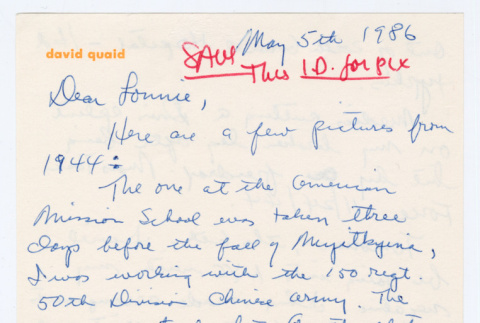 May 5th 1986
david quaid
SAVE
This I.D. for pix
Dear Lonnie,
Here are a few pictures from
1944:
The one at the American
Mission School was taken three
days before the fall of Myitkyina,
I was working with the 150 regt.
50th Division Chinese army. The